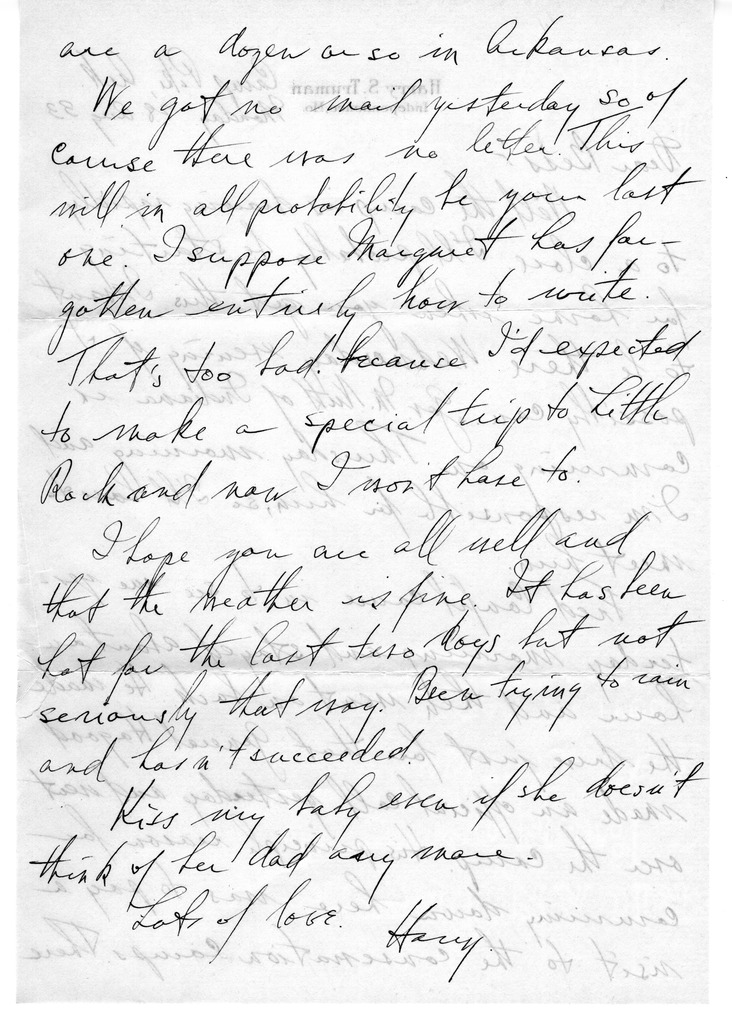 are a dozen or so in Arkansas.
We got no mail yesterday so of
course there was no letter. This
will in all probability be your last
one. I suppose Margaret has for-
gotten entirely how to write.
That's too bad because I'd expected
to make a special trip to Little
Rock and now I won't have to.
I hope you are all well and
that the weather is fine. It has been
hot for the last two days but not
seriously that way. Been trying to rain
and hasn't succeeded.
Kiss my baby even if she doesn't
think of her dad any more.
Lots of love. Harry.